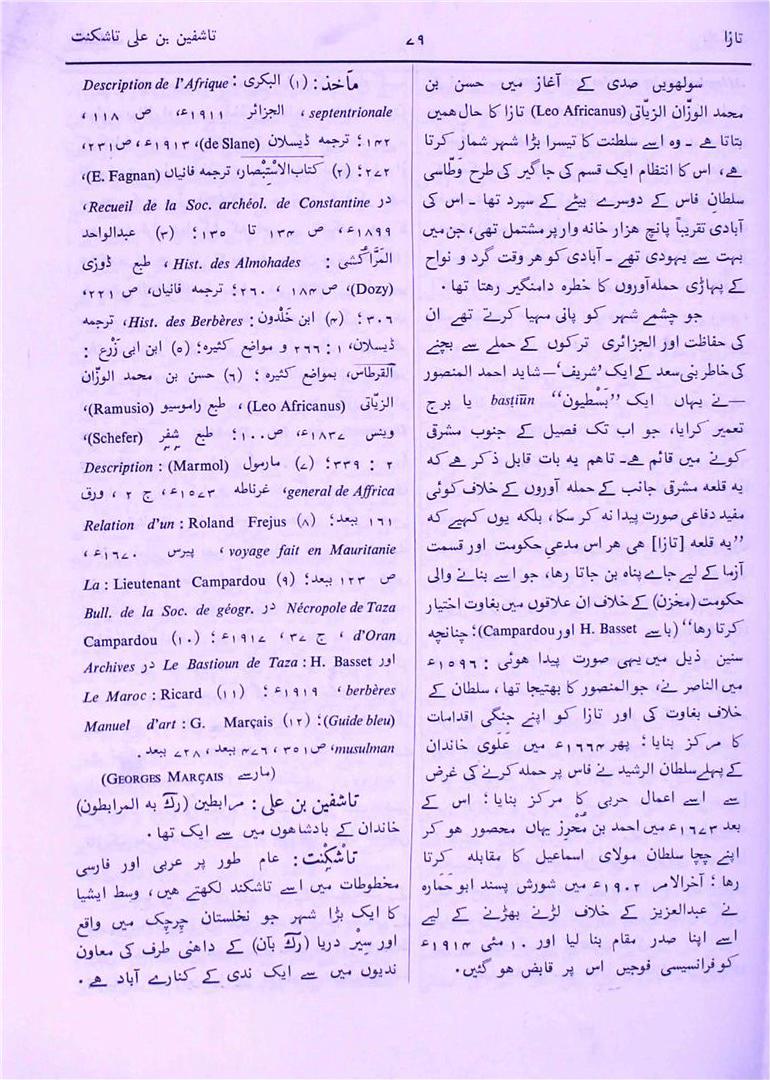 تازا
۷۹
تاشفین بن علی تاشکنت
سولھویں صدی کے آغاز میں حسن بن
محمد الوزّان الزیّاتی (Leo Africanus) تازا کا حال ھمیں
بتاتا ہے ۔ وہ اسے سلطنت کا تیسرا بڑا شہر شمار کرتا
ہے، اس کا انتظام ایک قسم کی جاگیر کی طرح وَطّاسی
سلطانِ فاس کے دوسرے بیٹے کے سپرد تھا ۔ اس کی
آبادی تقریباً پانچ ھزار خانہ وار پر مشتمل تھی، جن میں
بہت سے یہودی تھے ۔ آبادی کو ھر وقت گرد و نواح
کے پہاڑی حملہ آوروں کا خطرہ دامنگیر رھتا تھا ۔
جو چشمے شہر کو پانی مہیا کرتے تھے ان
کی حفاظت اور الجزائری ترکوں کے حملے سے بچنے
کی خاطر بنی سعد کے ایک ’شریف‘ — شاید احمد المنصور
— نے یہاں ایک ”بَسْطیون“ basṭiūn یا برج
تعمیر کرایا، جو اب تک فصیل کے جنوب مشرقی
کونے میں قائم ہے ۔ تاھم یہ بات قابل ذکر ہے کہ
یہ قلعہ مشرقی جانب کے حملہ آوروں کے خلاف کوئی
مفید دفاعی صورت پیدا نہ کر سکا، بلکہ یوں کہیے کہ
”یہ قلعہ [تازا] ھی ھر اس مدعیِ حکومت اور قسمت
آزما کے لیے جاے پناہ بن جاتا رھا، جو اسے بنانے والی
حکومت (مخزن) کے خلاف ان علاقوں میں بغاوت اختیار
کرتا رھا“ (باسے H. Basset اور Campardou)؛ چنانچہ
سنین ذیل میں یہی صورت پیدا ھوئی : ۱۵۹۶ء
میں الناصر نے، جو المنصور کا بھتیجا تھا، سلطان کے
خلاف بغاوت کی اور تازا کو اپنے جنگی اقدامات
کا مرکز بنایا؛ پھر ۱۶۶۴ء میں عَلَوی خاندان
کے پہلے سلطان الرشید نے فاس پر حملہ کرنے کی غرض
سے اسے اعمال حربی کا مرکز بنایا؛ اس کے
بعد ۱۶۷۳ء میں احمد بن مُحْرِز یہاں محصور ھو کر
اپنے چچا سلطان مولای اسماعیل کا مقابلہ کرتا
رھا؛ آخرالامر ۱۹۰۲ء میں شورش پسند ابو حَمارہ
نے عبدالعزیز کے خلاف لڑنے بھڑنے کے لیے
اسے اپنا صدر مقام بنا لیا اور ۱۰ مئی ۱۹۱۴ء
کو فرانسیسی فوجیں اس پر قابض ھو گئیں ۔
مآخذ : (۱) البکری : Description de l’Afrique
septentrionale، الجزائر ۱۹۱۱ء، ص ۱۱۸ ،
۱۴۲؛ ترجمہ ڈیسلان (de Slane)، ۱۹۱۳ء، ص ۲۳۱،
۲۷۲؛ (۲) کتاب الاِسْتِبْصار، ترجمہ فانیاں (E. Fagnan)،
در Recueil de la Soc. archéol. de Constantine،
۱۸۹۹ء، ص ۱۳۴ تا ۱۳۵؛ (۳) عبدالواحد
المَرّاکُشی : Hist. des Almohades ، طبع ڈوزی
(Dozy)، ص ۱۸۴ ، ۲۶۰؛ ترجمہ فانیاں، ص ۲۲۱،
۳۰۶؛ (۴) ابن خَلْدون : Hist. des Berbères، ترجمہ
ڈیسلان، ۱ : ۲۶۶ و مواضع کثیرہ؛ (۵) ابن ابی زَرْع :
القرطاس، بمواضع کثیرہ؛ (۶) حسن بن محمد الوزّان
الزیّاتی (Leo Africanus) ، طبع راموسیو (Ramusio)،
وینس ۱۸۳۷ء، ص ۱۰۰؛ طبع شِفِر (Schefer)،
۲ : ۳۳۹؛ (۷) مارمول (Marmol) : Description
general de Affrica، غرناطہ ۱۵۷۳ء، ج ۲ ، ورق
۱۶۱ ببعد؛ (۸) Roland Frejus : Relation d’un
voyage fait en Mauritanie ، پیرس ۱۶۷۰ء ،
ص ۱۲۳ ببعد؛ (۹) Lieutenant Campardou : La
Nécropole de Taza در Bull. de la Soc. de géogr.
d’Oran ، ج ۳۷ ، ۱۹۱۷ء؛ (۱۰) Campardou
اور H. Basset : Le Bastioun de Taza در Archives
berbères ، ۱۹۱۹ء؛ (۱۱) Ricard : Le Maroc
(Guide bleu)؛ (۱۲) G. Marçais : Manuel d’art
musulman، ص ۳۵۱ ، ۴۷۶ ببعد ، ۲۲۸ ببعد ۔
(مارسے GEORGES MARÇAIS)
تاشفین بن علی : مرابطین (رکّ بہ المرابطون)
خاندان کے بادشاھوں میں سے ایک تھا ۔
تاشْکِنْت : عام طور پر عربی اور فارسی
مخطوطات میں اسے تاشکند لکھتے ھیں، وسط ایشیا
کا ایک بڑا شہر جو نخلستان چرچک میں واقع
اور سِیْر دریا (رکّ بآن) کے داھنی طرف کی معاون
ندیوں میں سے ایک ندی کے کنارے آباد ہے ۔